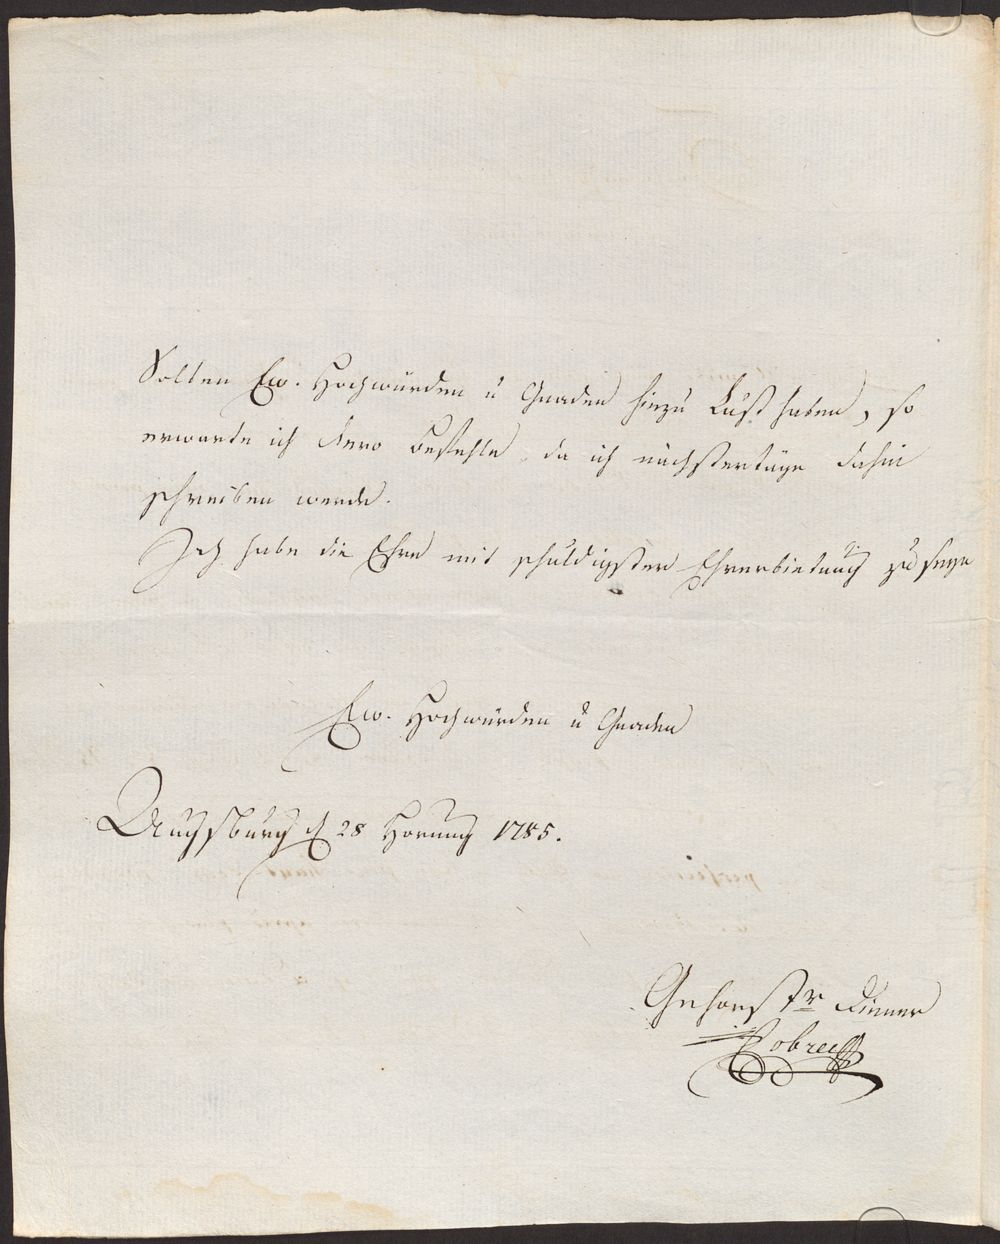 Solten Ew. Hochwürden u Gnaden hiezu Lust haben, so
erwarte ich dero Befehle, da ich nächstertäge dahin
schreiben werde.
Ich habe die Ehre mit schuldigster Ehrerbietung zu seyn
Ew. Hochwürden u Gnaden
Augsburg d 28 Hornung 1785.
Gehorsstr Diener
Cobres